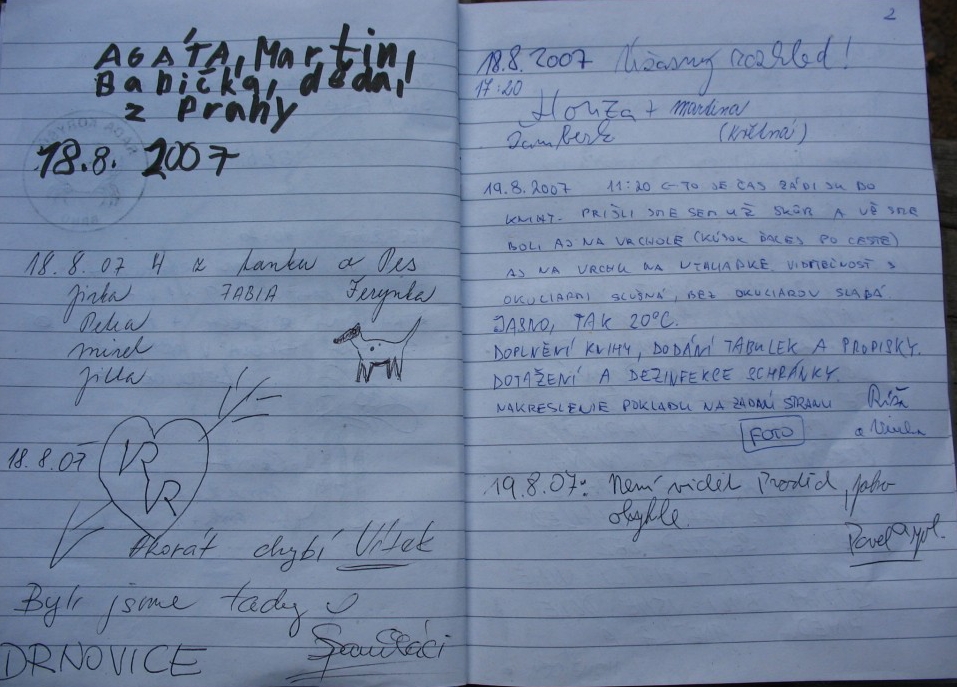 AGÁTA, Martin,
Babička, děda,
z Prahy
18.8. 2007
18.8.07 4 z Lanku a Pes
Jirka FABIA Terynka
Petra
Mirek
Jitka
18.8.07
VR
VR
Akorát chybí Vítek
Byli jsme tady
DRNOVICE
2
18.8.2007 Úžasný rozhled!
17:20
Honza + Martina
Žamberk (Křtiná)
19.8.2007 11:20 ← TO JE ČAS ZÁPISU DO
KNIHY. PRIŠLI SME SEM UŽ SKÔR A UŽ SME
BOLI AJ NA VRCHOLE (KÚSOK ĎALEJ PO CESTE)
AJ NA VRCHU NA VYHLIADKE. VIDITEĽNOSŤ S
OKULIARMI SLUŠNÁ, BEZ OKULIAROV SLABÁ.
JASNO, TAK 20°C.
DOPLNĚNÍ KNIHY, DODÁNÍ TABULEK A PROPISKY.
DOTAŽENÍ A DEZINFEKCE SCHRÁNKY.
NAKRESLENIE POKLADU NA ZADNÍ STRANU Ríša
FOTO a
19.8.07: Není vidět Praděd, jako
obykle.
Pavel